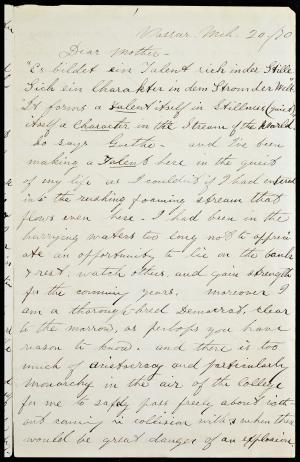 Vassar. Mch. 20/70
Dear Mother -
"Es bildet ein Talent sich in der Stille
Sich ein Charakter in dem Strom der Welt"
"It forms a talent itself in Stillness (quiet)
itself a Character in the Stream of the World"
So says Goethe - and I've been
making a Talent here in the quiet
of my life as I couldn't if I had entered
into the rushing foaming stream that
flows even here - I had been in the
hurrying waters too long not to appreci-
ate an opportunity to lie on the bank
& rest, watch others, and gain strength
for the coming years. moreover I
am a thorough bred Democrat, clear
to the marrow, as perhaps you have
reason to know. and there is too
much of aristocracy and particularly
monarchy in the air of the College
for me to safely pass freely about with-
out coming in collision with & when there
would be great danger of an explosion